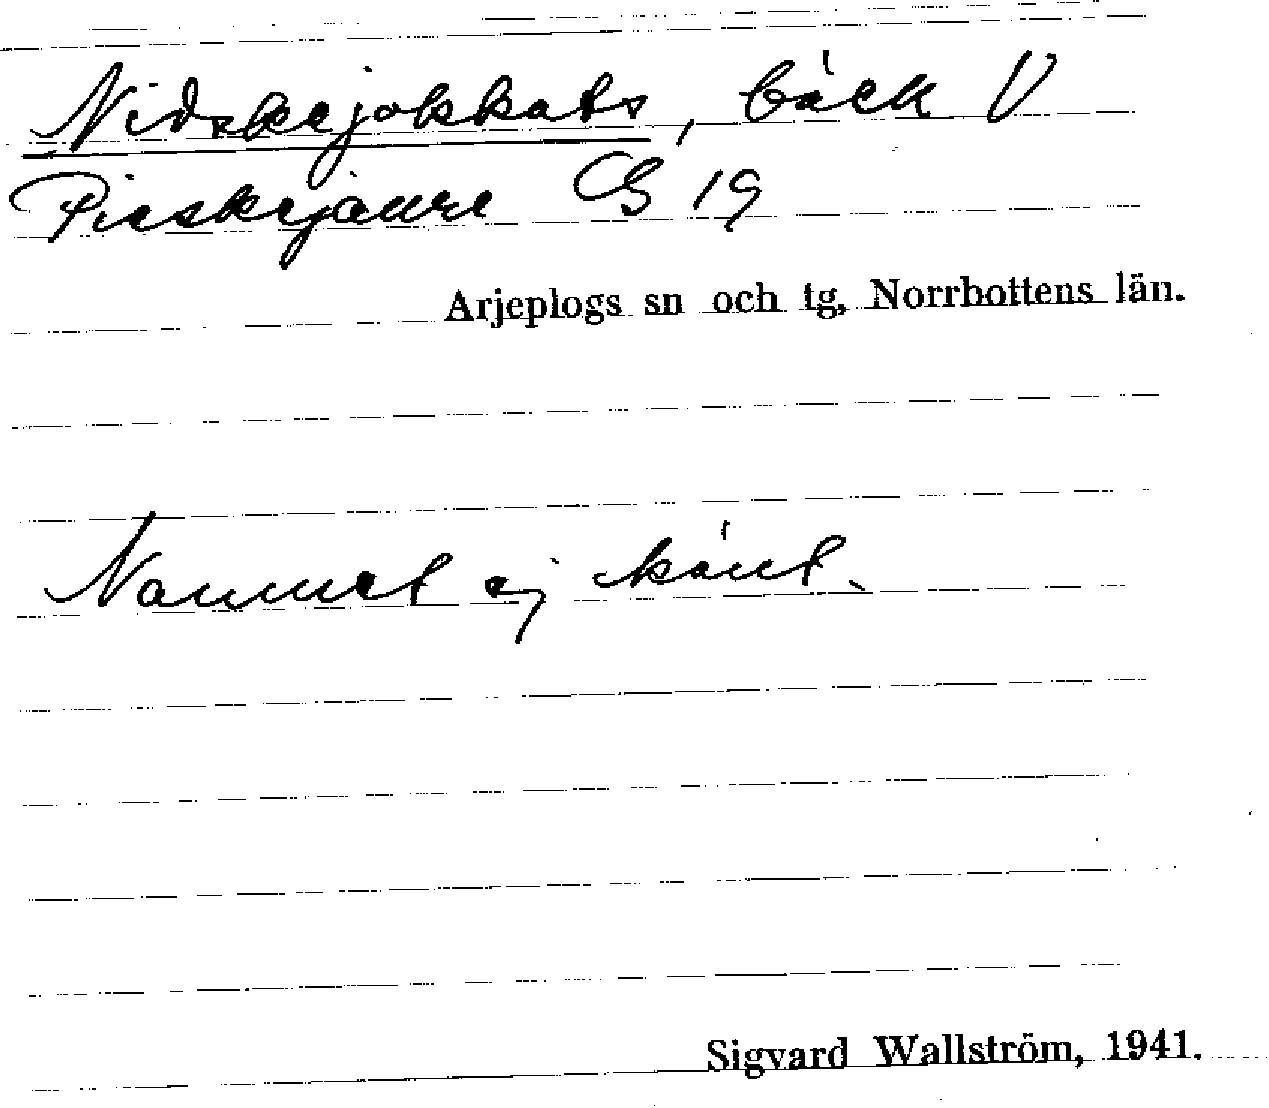 Nidskejokkats, bäck V
Pieskejaure G 19
Arjeplogs sn och tg, Norrbottens län.
Namnet ej känt.
Sigvard Wallström, 1941.